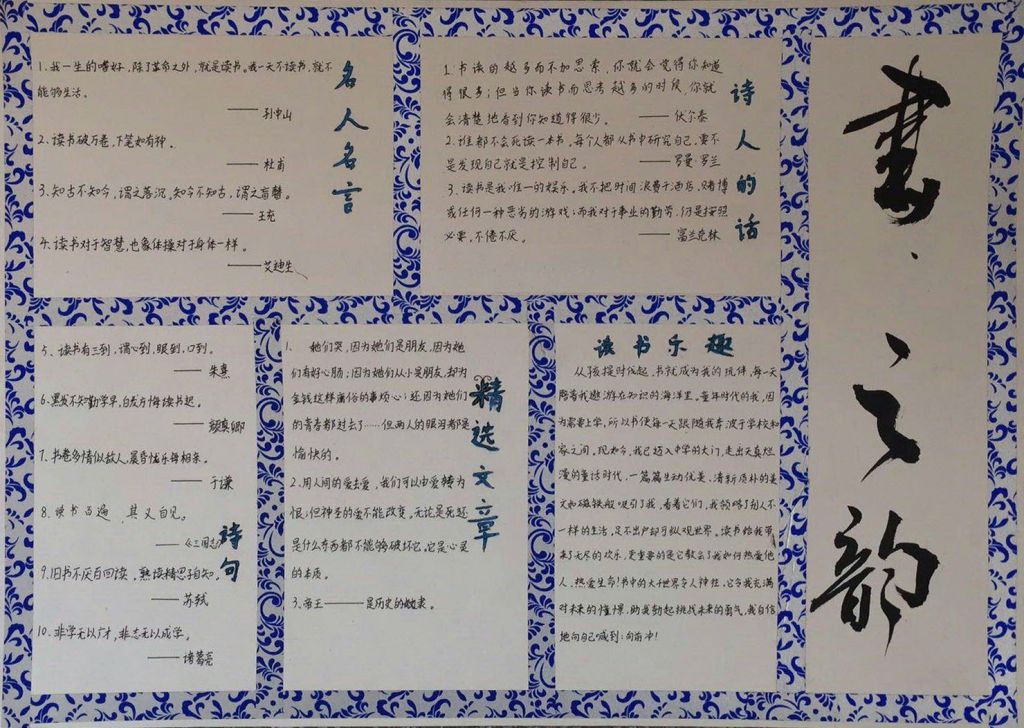 书之韵
名人名言
1.我一生的嗜好,除了革命之外,就是读书。我一天不读书,就不
能够生活。
——孙中山
2.读书破万卷,下笔如有神。
——杜甫
3.知古不知今,谓之落沉。知今不知古,谓之盲瞽。
——王充
4.读书对于智慧,也象体操对于身体一样。
——艾迪生
诗人的话
1.书读的越多而不加思索,你就会觉得你知道
得很多;但当你读书而思考越多的时候,你就
会清楚地看到你知道得很少。——伏尔泰
2.谁都不会死读一本书,每个人都从书中研究自己,要不
是发现自己就是控制自己。——罗曼罗兰
3.读书是我唯一的娱乐。我不把时间浪费于酒店,赌博
或任何一种恶劣的游戏;而我对于事业的勤劳,仍是按照
必要,不倦不厌。——富兰克林
诗句
5、读书有三到,谓心到,眼到,口到。
——朱熹
6.黑发不知勤学早,白发方悔读书迟。
——颜真卿
7.书卷多情似故人,晨昏忧乐每相亲。
——于谦
8.读书百遍 其义自见。
——《三国志》
9.旧书不厌百回读,熟读精思子自知。
——苏轼
10.非学无以广才,非志无以成学。
——诸葛亮
精选文章
1. 她们哭,因为她们是朋友,因为她
们有好心肠;因为她们从小是朋友,却为
金钱这样庸俗的事烦心;还因为她们
的青春都过去了……但两人的眼泪都是
愉快的。
2.用人间的爱去爱,我们可以由爱转为
恨;但神圣的爱不能改变。无论是死还
是什么东西都不能够破坏它。它是心灵
的本质。
3.帝王——是历史的奴隶。
读书乐趣
从孩提时代起,书就成为我的玩伴,每一天
陪着我遨游在知识的海洋里。童年时代的我,因
为需要上学,所以书便每一天跟随我奔波于学校和
家之间。现如今,我已踏入中学的大门,走出天真烂
漫的童话时代,一篇篇生动优美、清新质朴的美
文如磁铁般吸引了我,看着它们,我领略了别人不
一样的生活,足不出户却可纵观世界。读书给我带
来了无尽的欢乐,更重要的是它教会了我如何热爱他
人,热爱生命!书中的大千世界令人神往,它令我充满
对未来的憧憬,助我勃起挑战未来的勇气,我自信
地向自己喊到:向前冲!